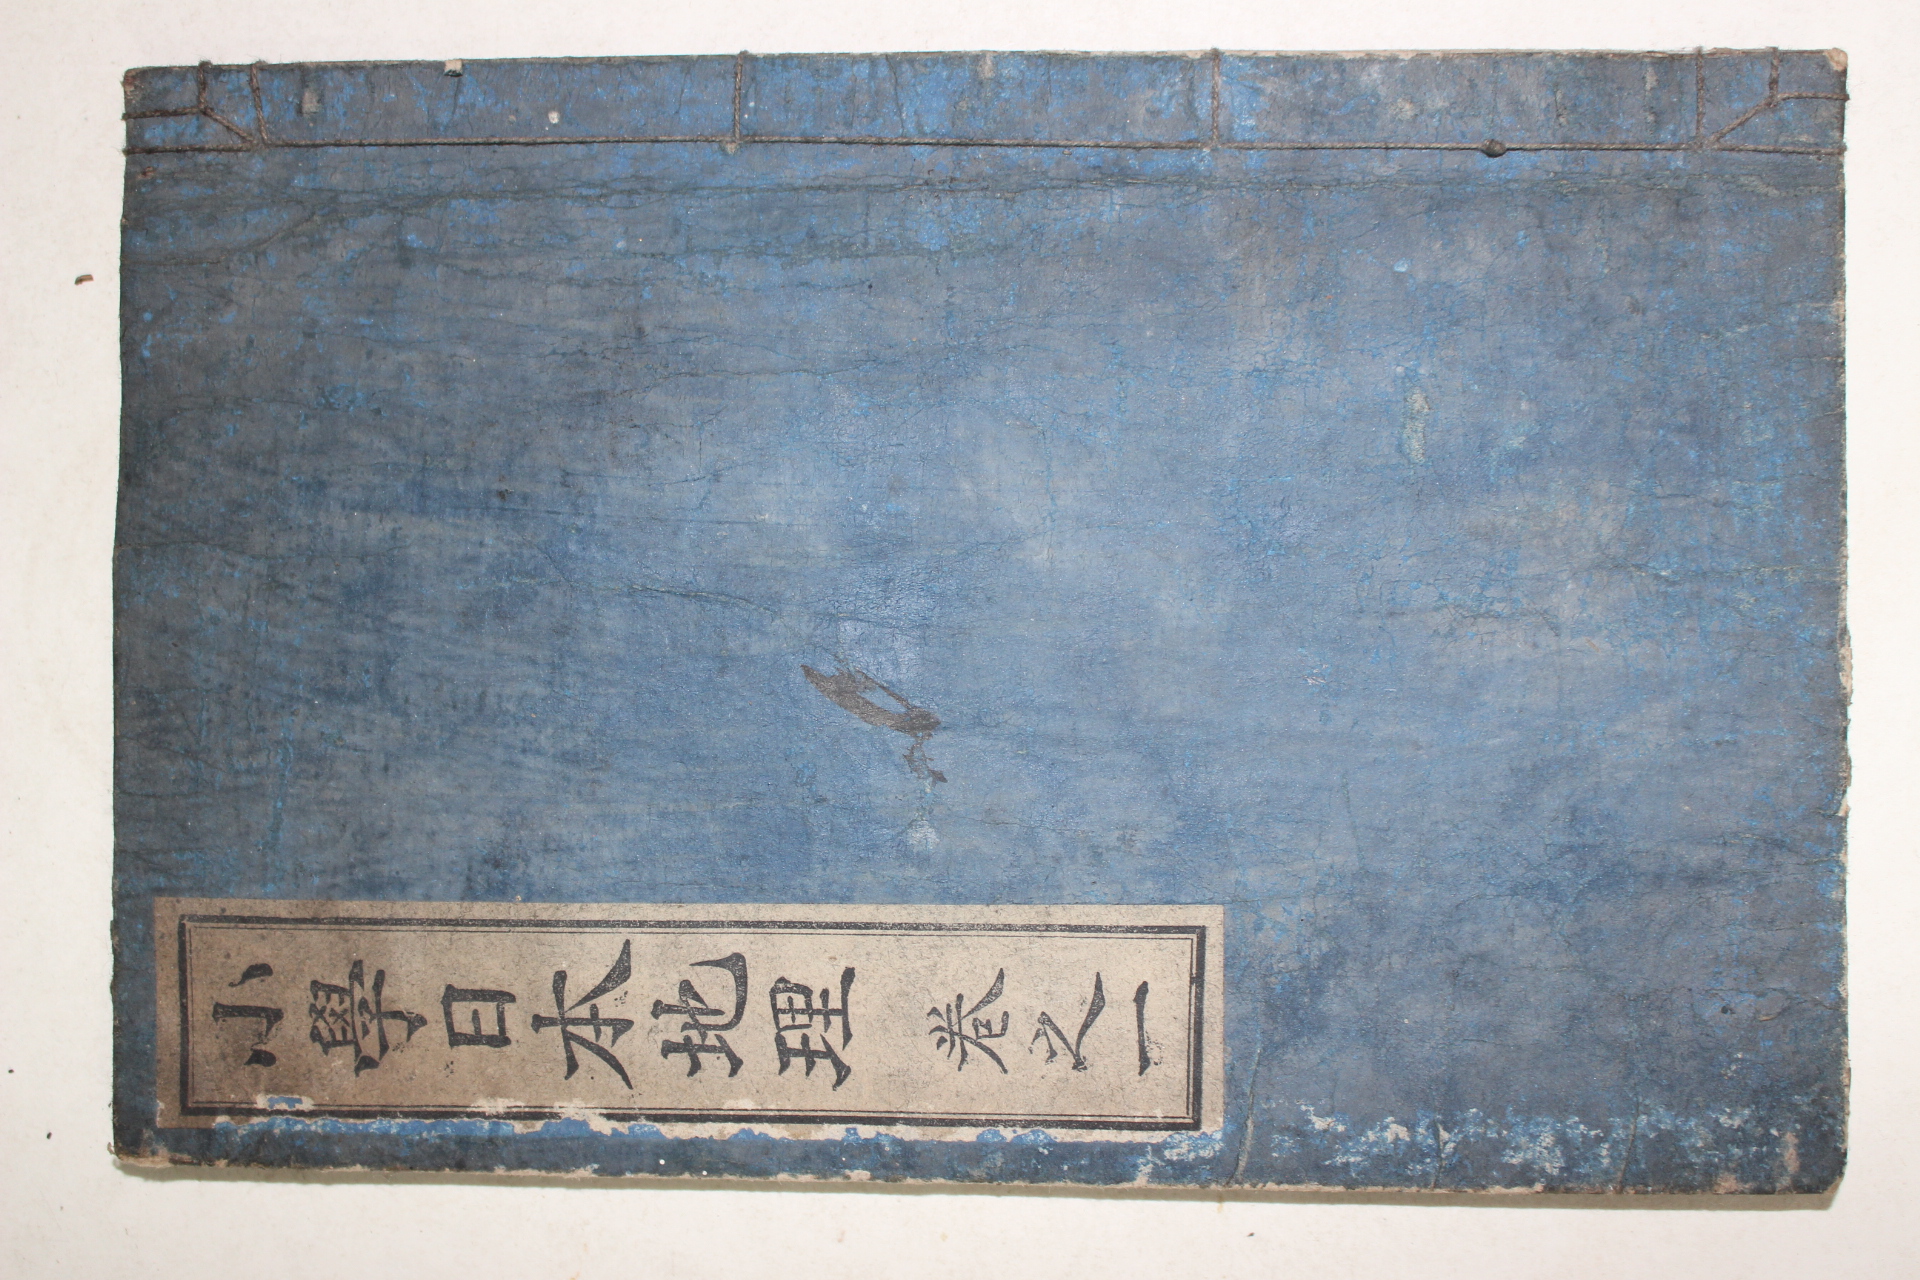 小學日本地理 卷之一